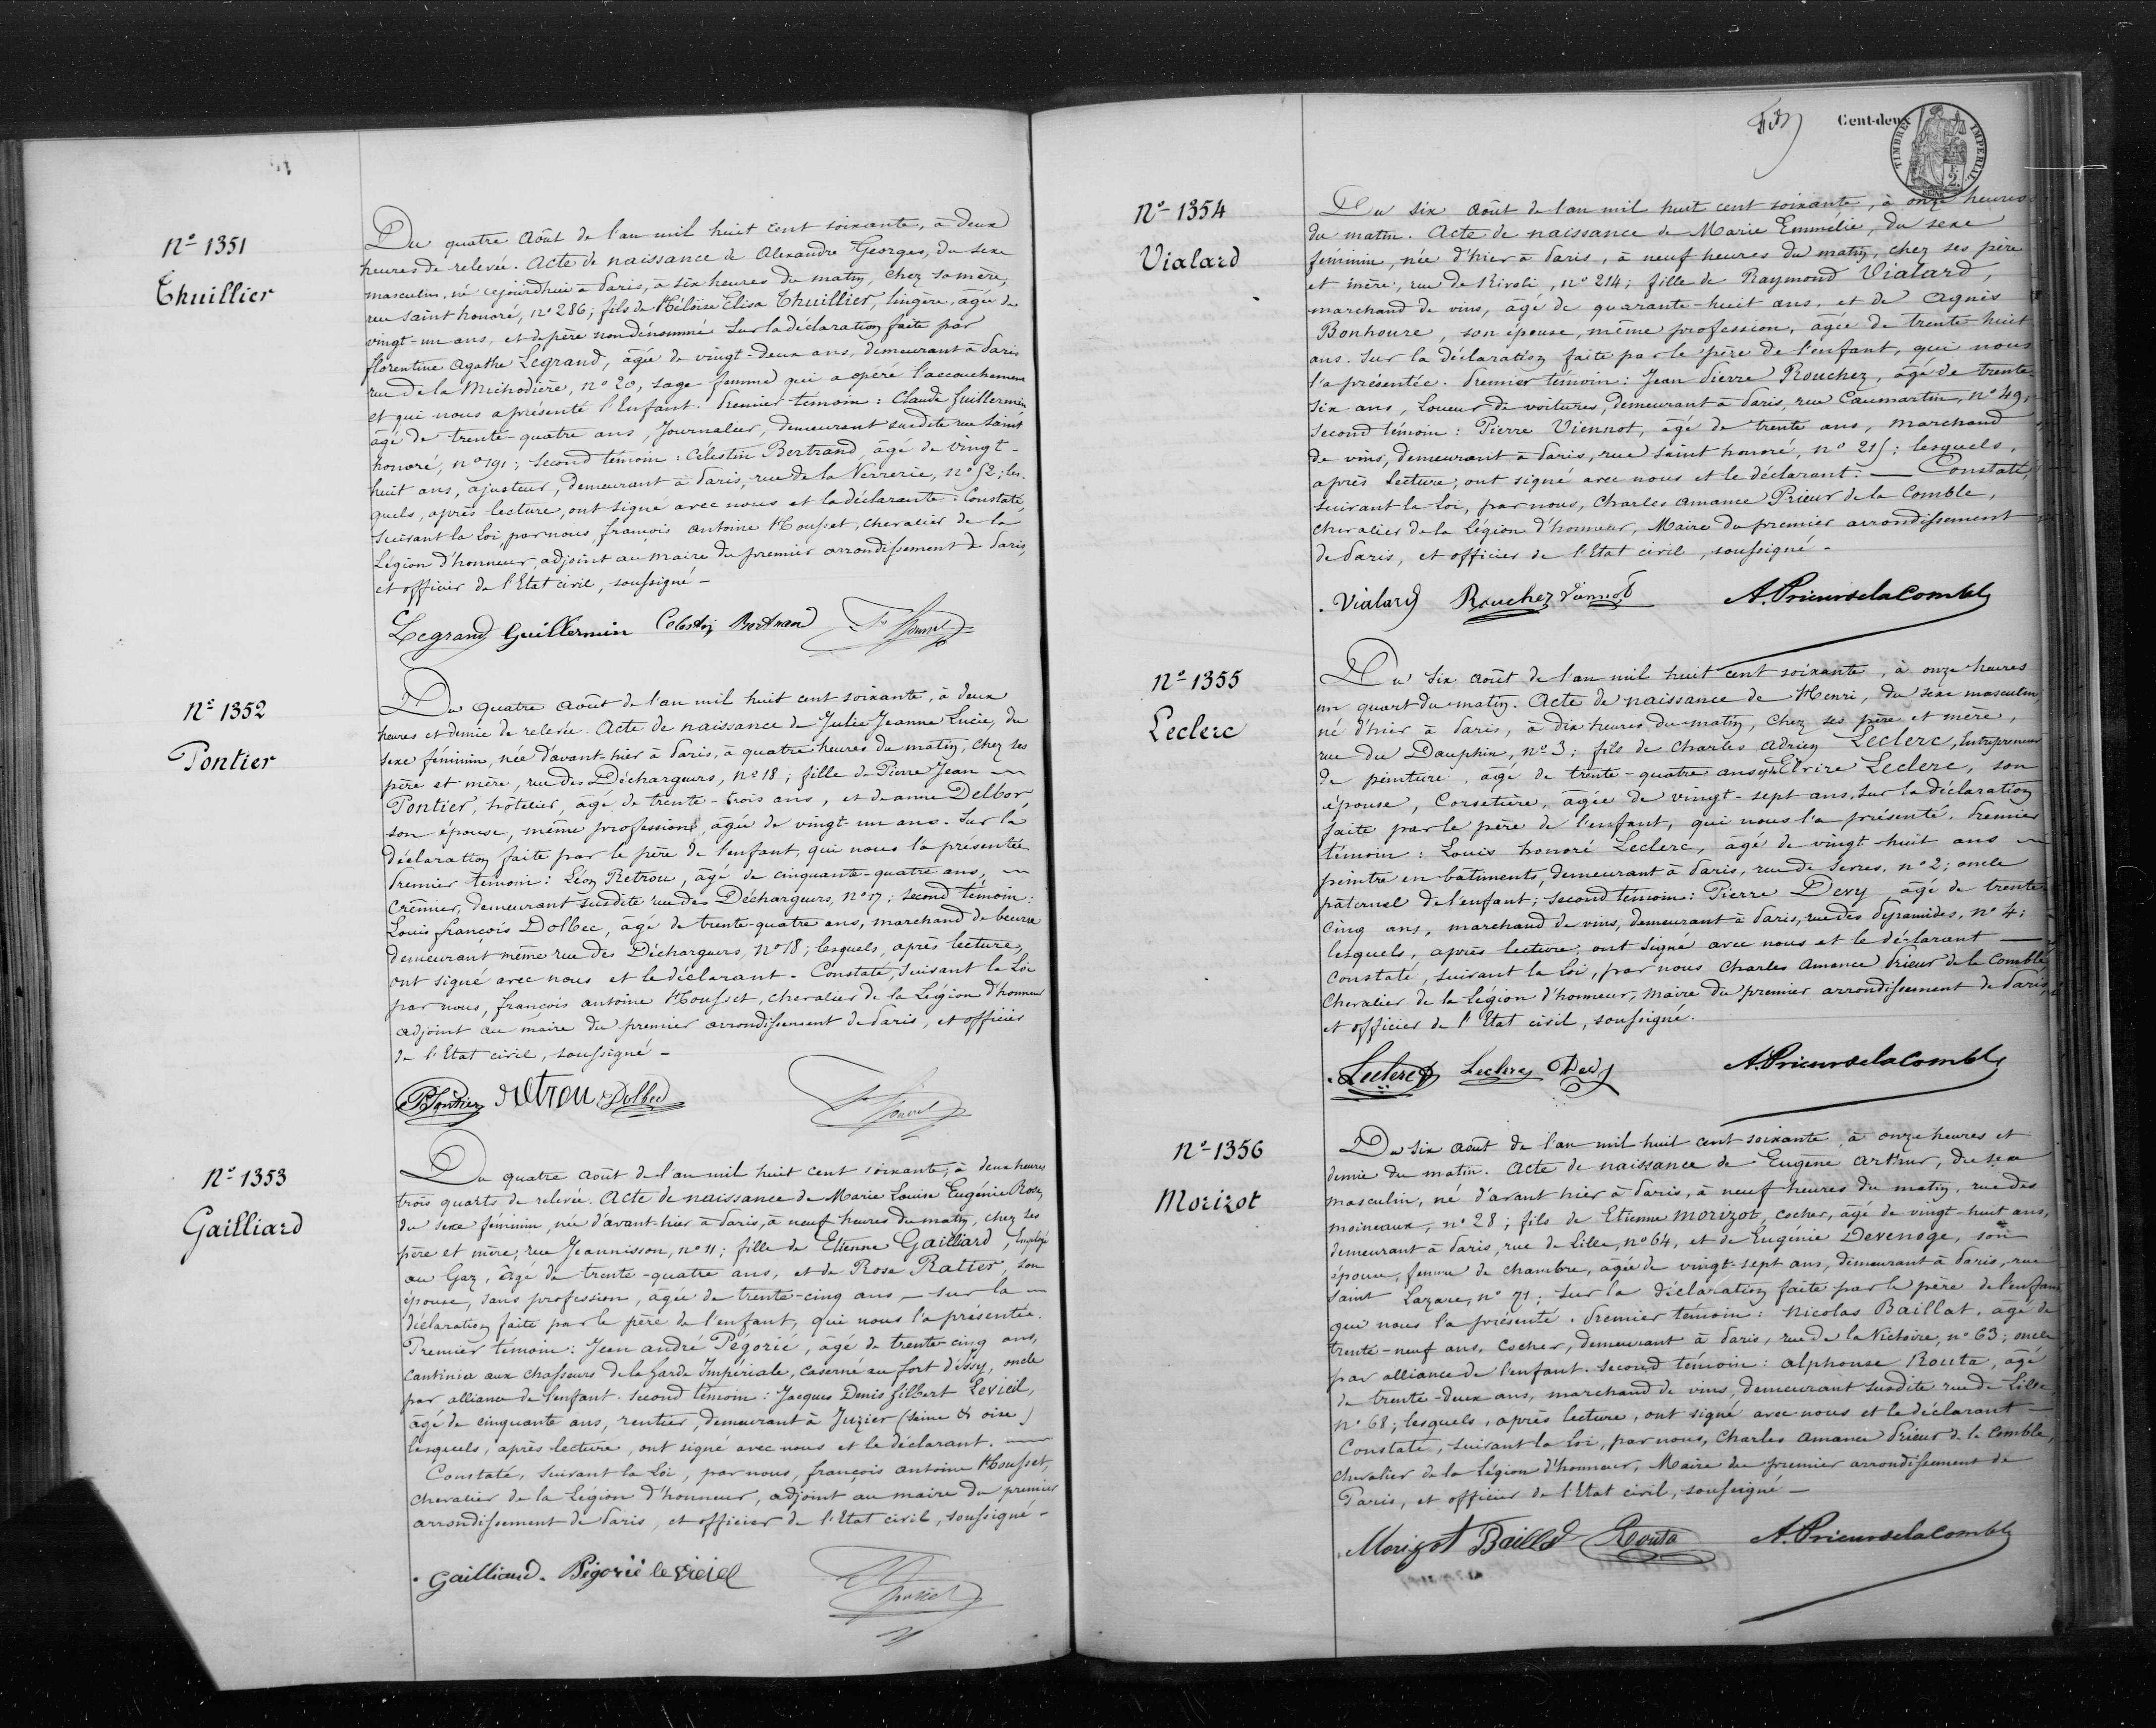 N° 1351
Thuillier
Du quatre Août de l'an mil huit cent soixante, à deux
heures de relevée. Acte de naissance de Alexandre Georges, du sexe
masculin, né cejourd'hui à Paris, à six heures du matin, chez sa mère,
rue saint honoré, n° 286; fils de Héloïse Elisa Thuillier, lingère, âgée de
vingt-un ans, et de père non dénommé. Sur la déclaration faite par
florentine Agathe Legrand, âgée de vingt-deux ans, demeurant à Paris
rue de la Michodière, n° 20, sage-femme qui a opéré l'accouchement
et qui nous a présenté l'Enfant. Premier témoin : Claude Guillermin
âgé de trente-quatre ans, Journalier, demeurant susdite rue Saint
honoré, n° 191; second témoin : Célestin Bertrand, âgé de vingt-
huit ans, ajusteur, demeurant à Paris, rue de la Verrerie, n° 52; les-
quels, après lecture, ont signé avec nous et la déclarante. Constaté,
suivant la Loi, par nous, françois antoine Housset, chevalier de la
Légion d'honneur, adjoint au maire du premier arrondissement de Paris,
et officier de l'Etat civil, soussigné -
Legrand Guillermin Celestin Bertrand
N° 1352
Pontier
Du quatre août de l'an mil huit cent soixante, à deux
heures et demie de relevée. Acte de naissance de Julie Jeanne Lucie, du
sexe féminin, née d'avant-hier à Paris, à quatre heures du matin, chez ses
père et mère, rue des Déchargeurs, n° 18; fille de Pierre Jean
Pontier, hôtelier, âgé de trente-trois ans, et de anne Delbor
son épouse, même profession, âgée de vingt-un ans. Sur la
déclaration faite par le père de l'enfant, qui nous l'a présentée
Premier témoin : Léon Retrou, âgé de cinquante-quatre ans,
crémier, demeurant susdite rue des Déchargeurs, n° 17; second témoin :
Louis françois Dolbec, âgé de trente-quatre ans, marchand de beurre
demeurant même rue des Déchargeurs, n° 18; lesquels, après lecture,
ont signé avec nous et le déclarant. Constaté, suivant la Loi
par nous, françois antoine Housset, chevalier de la Légion d'honneur
adjoint au maire du premier arrondissement de Paris, et officier
de l'Etat civil, soussigné -
Pontier retrou Dolbec
N° 1353
Gailliard
Du quatre août de l'an mil huit cent soixante, à deux heures
trois quarts de relevée. Acte de naissance de Marie Louise Eugénie Rose,
du sexe féminin, née d'avant-hier à Paris, à neuf heures du matin, chez ses
père et mère, rue Jeannisson, n° 11; fille de Etienne Gailliard, Employé
au Gaz, âgé de trente-quatre ans, et de Rose Ratier, son
épouse, sans profession, âgée de trente-cinq ans - sur la
déclaration faite par le père de l'enfant, qui nous l'a présentée.
Premier témoin : Jean andré Pégorié, âgé de trente-cinq ans,
cantinier aux chasseurs de la Garde Impériale, caserné au fort d'issy, oncle
par alliance de l'enfant. second témoin : Jacques Denis Gilbert Levieil,
âgé de cinquante ans, rentier, demeurant à Juzier (Seine & oise)
lesquels, après lecture, ont signé avec nous et le déclarant.
Constaté, suivant la Loi, par nous, françois antoine Housset,
chevalier de la Légion d'honneur, adjoint au maire du premier
arrondissement de Paris, et officier de l'Etat civil, soussigné -
Gailliard. Pégorié le vieiel
Cent-deux
TIMBRE IMPERIAL
SEINE
N° 1354
Vialard
Du six août de l'an mil huit cent soixante, à onze heures
du matin. Acte de naissance de Marie Emmélie, du sexe
féminin, née d'hier à Paris, à neuf heures du matin, chez ses père
et mère, rue de Rivoli, n° 214; fille de Raymond Vialard,
marchand de vins, âgé de quarante-huit ans, et de Agnès
Bonhoure, son épouse, même profession, âgée de trente-huit
ans. Sur la déclaration faite par le père de l'enfant, qui nous
l'a présentée. Premier témoin : Jean Pierre Rouchez, âgé de trente-
six ans, Loueur de voitures, demeurant à Paris, rue Caumartin, n° 49,
second témoin : Pierre Viennot, âgé de trente ans, marchand
de vins, demeurant à Paris, rue saint honoré, n° 215; lesquels,
après lecture, ont signé avec nous et le déclarant. — Constaté,
suivant la Loi, par nous, Charles Amance Prieur de la Comble,
chevalier de la Légion d'honneur, Maire du premier arrondissement
de Paris, et officier de l'Etat civil, soussigné -
Vialard Rouchez Viennot A. Prieur de la Comble
N° 1355
Leclerc
Du six août de l'an mil huit cent soixante, à onze heures
un quart du matin. Acte de naissance de Henri, du sexe masculin,
né d'hier à Paris, à dix heures du matin, chez ses père et mère,
rue du Dauphin, n° 3; fils de Charles Adrien Leclerc, Entrepreneur
de peinture, âgé de trente-quatre ans, et de Elvire Leclerc, son
épouse, Corsetière, âgée de vingt-sept ans, Sur la déclaration
faite par le père de l'enfant, qui nous l'a présenté. Premier
témoin : Louis honoré Leclerc, âgé de vingt-huit ans
peintre en bâtiments, demeurant à Paris, rue de Sèvres, n° 2; oncle
paternel de l'enfant; second témoin : Pierre Devy âgé de trente-
cinq ans, marchand de vins, demeurant à Paris, rue des Pyramides, n° 4;
lesquels, après lecture, ont signé avec nous et le déclarant —
Constaté, suivant la Loi, par nous Charles Amance Prieur de la Comble
Chevalier de la Légion d'honneur, Maire du premier arrondissement de Paris
et officier de l'Etat civil, soussigné.
Leclerc Leclerc Devy A. Prieur de la Comble
N° 1356
Morizot
Du six août de l'an mil huit cent soixante, à onze heures et
demie du matin. Acte de naissance de Eugène Arthur, du sexe
masculin, né d'avant hier à Paris, à neuf heures du matin, rue des
moineaux, n° 28; fils de Etienne Morizot, cocher, âgé de vingt-huit ans,
demeurant à Paris, rue de Lille, n° 64, et de Eugénie Devenoge, son
épouse, femme de chambre, âgée de vingt-sept ans, demeurant à Paris, rue
Saint Lazare, n° 71; sur la déclaration faite par le père de l'enfant
qui nous l'a présenté. Premier témoin : Nicolas Baillat, âgé de
trente-neuf ans, Cocher, demeurant à Paris, rue de la Victoire, n° 63; oncle
par alliance de l'enfant. second témoin : alphonse Routa, âgé
de trente-deux ans, marchand de vins, demeurant susdite rue de Lille
n° 68; lesquels, après lecture, ont signé avec nous et le déclarant —
Constaté, suivant la Loi, par nous, Charles Amance Prieur de la Comble,
chevalier de la Légion d'honneur, Maire du premier arrondissement de
Paris, et officier de l'Etat civil, soussigné —
Morizot Baillat Routa A. Prieur de la Comble